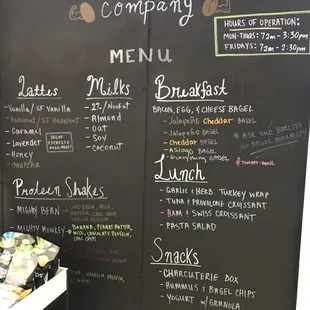 company
HOURS OF OPERATION:
MON-THURS: 7am - 3:30pm
FRIDAYS: 7am - 2:30pm
MENU
Lattes
- Vanilla / SF Vanilla
- Hazelnut / SF Hazelnut
- Caramel
- Lavender
- Honey
- Matcha
DECAF
ESPRESSO
AVAILABLE!
Milks
- 2% / Nonfat
- Almond
- Oat
- Soy
- Coconut
Protein Shakes
- MIGHTY BEAN -
- MIGHTY MONKEY -
BANANA, PEANUT BUTTER,
MILK, CHOCOLATE PROTEIN,
CHOC CHIPS
Breakfast
BACON, EGG, & CHEESE BAGEL
- JALAPEÑO CHEDDAR BAGEL
- JALAPEÑO BAGEL
- CHEDDAR BAGEL
- ASIAGO BAGEL
- EVERYTHING BAGEL
* ASK OUR BARISTA
Lunch
- GARLIC & HERB TURKEY WRAP
- TUNA & PROVOLONE CROISSANT
- HAM & SWISS CROISSANT
- PASTA SALAD
Snacks
- CHARCUTERIE BOX
- HUMMUS & BAGEL CHIPS
- YOGURT W/ GRANOLA